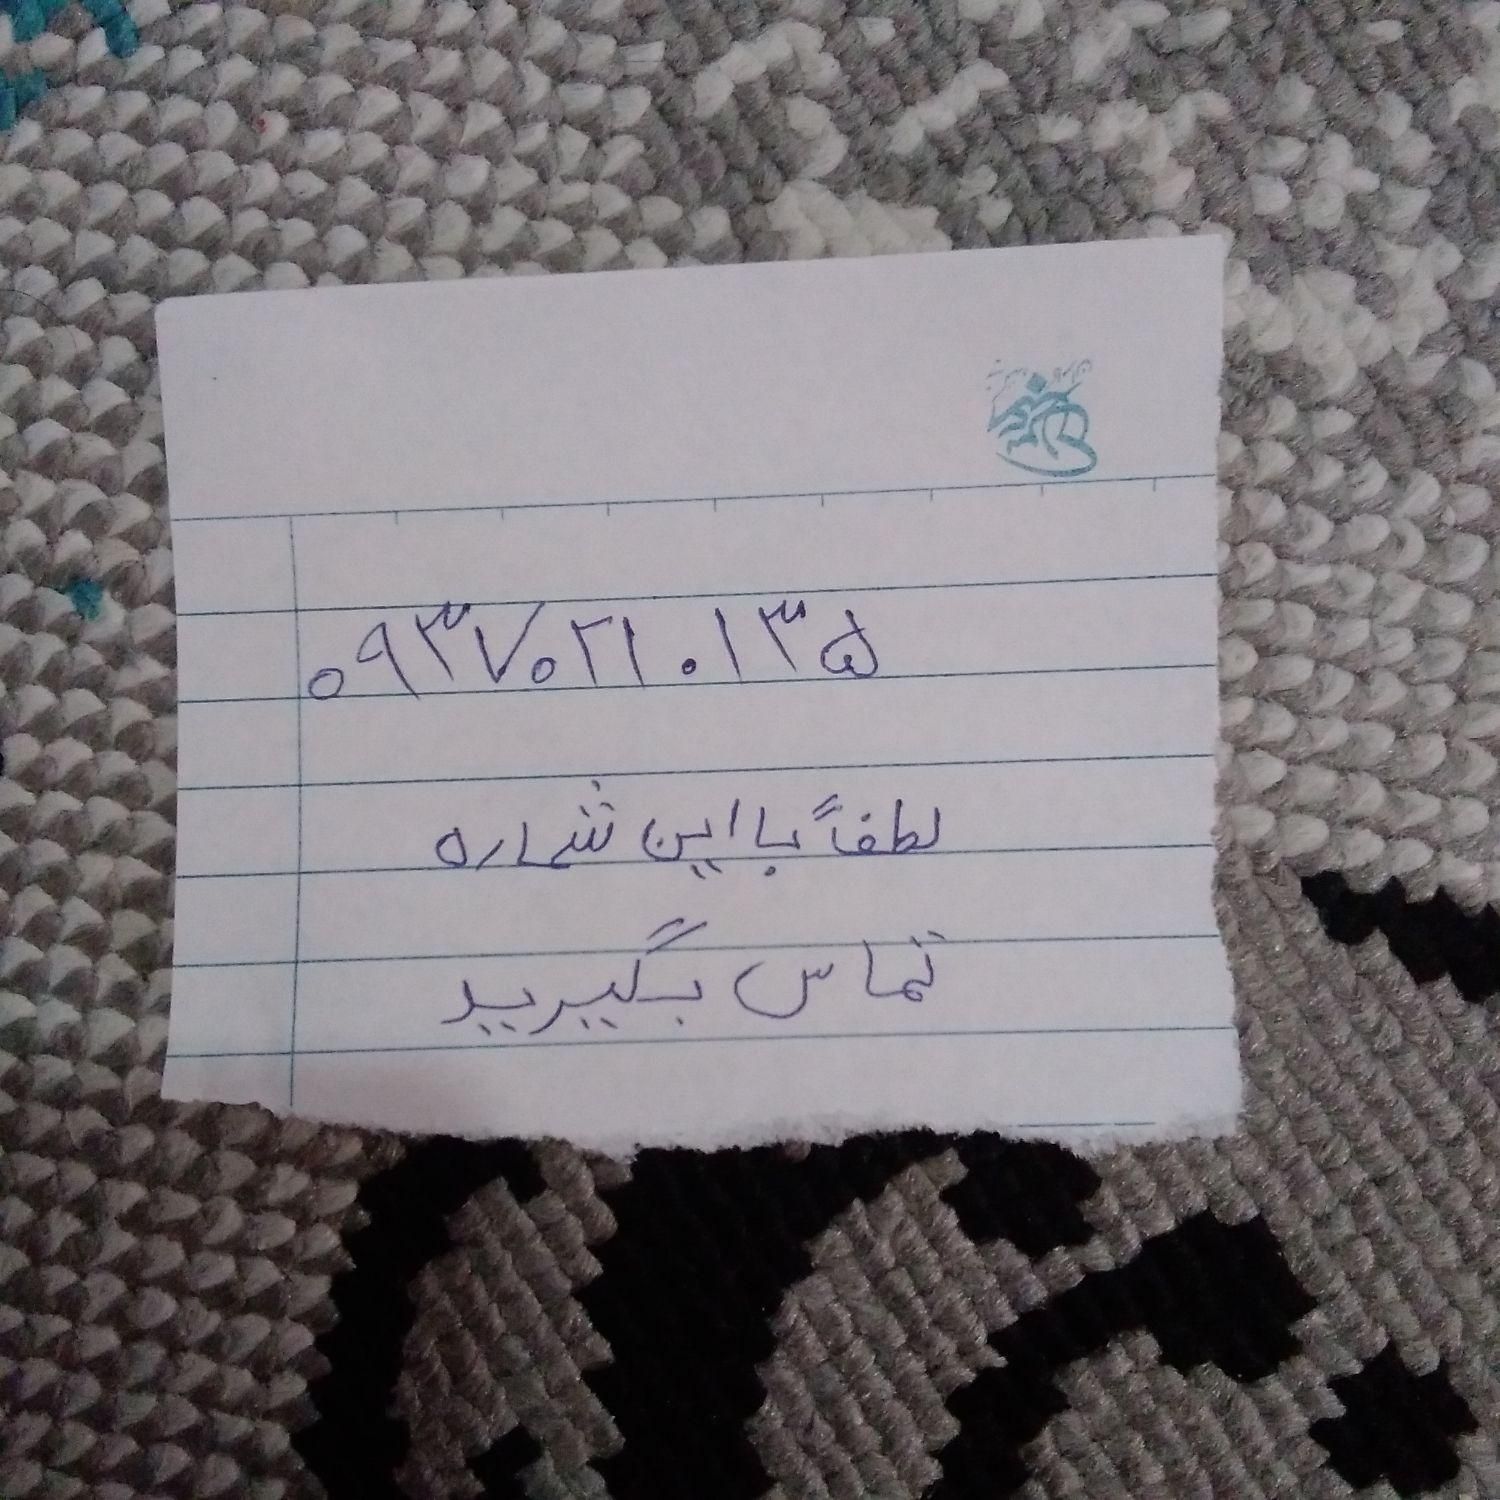 ۰۹۳۷۰۲۱۰۱۳۵
لطفاً با این شماره
تماس بگیرید